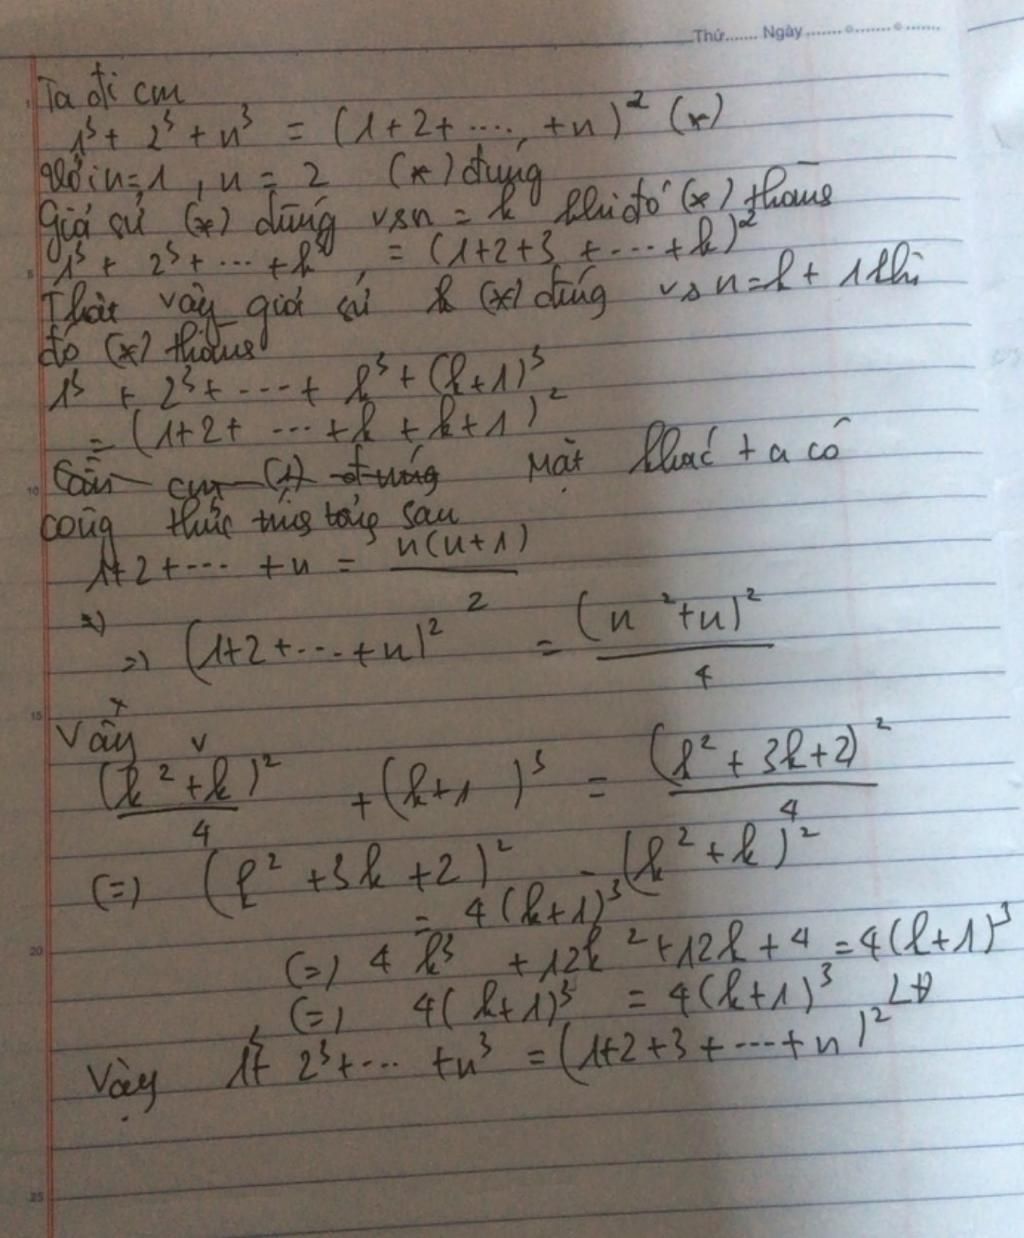 Thứ....... Ngày ....... ....... .......
Ta đi cm
1³ + 2³ + n³ = (1+2+ ...., +n)² (*)
Với n=1, n = 2 (*) đúng
Giả sử (*) đúng vs n = k khi đó (*) thành
1³ + 2³ + ... + k³, = (1+2+3 + ... + k)²
5
Thật vậy giả sử k (*) đúng vs n=k+1 khi
đó (*) thành
1³ + 2³ + ... + k³ + (k+1)³
= (1+2+ ... + k + k+1)²
10
Cần cm (1) đúng Mặt khác ta có
công thức tính tổng sau
1+2+... +n = n(n+1) / 2
=> (1+2+...+n)² = (n²+n)² / 4
15
Vậy
(k²+k)² / 4 + (k+1)³ = (k²+3k+2)² / 4
(=) (k²+3k+2)² - (k²+k)²
= 4(k+1)³
20
(=) 4k³ + 12k² + 12k + 4 = 4(k+1)³
(=) 4(k+1)³ = 4(k+1)³ LĐ
Vậy 1³+ 2³+... +n³ = (1+2+3+...+n)²
25